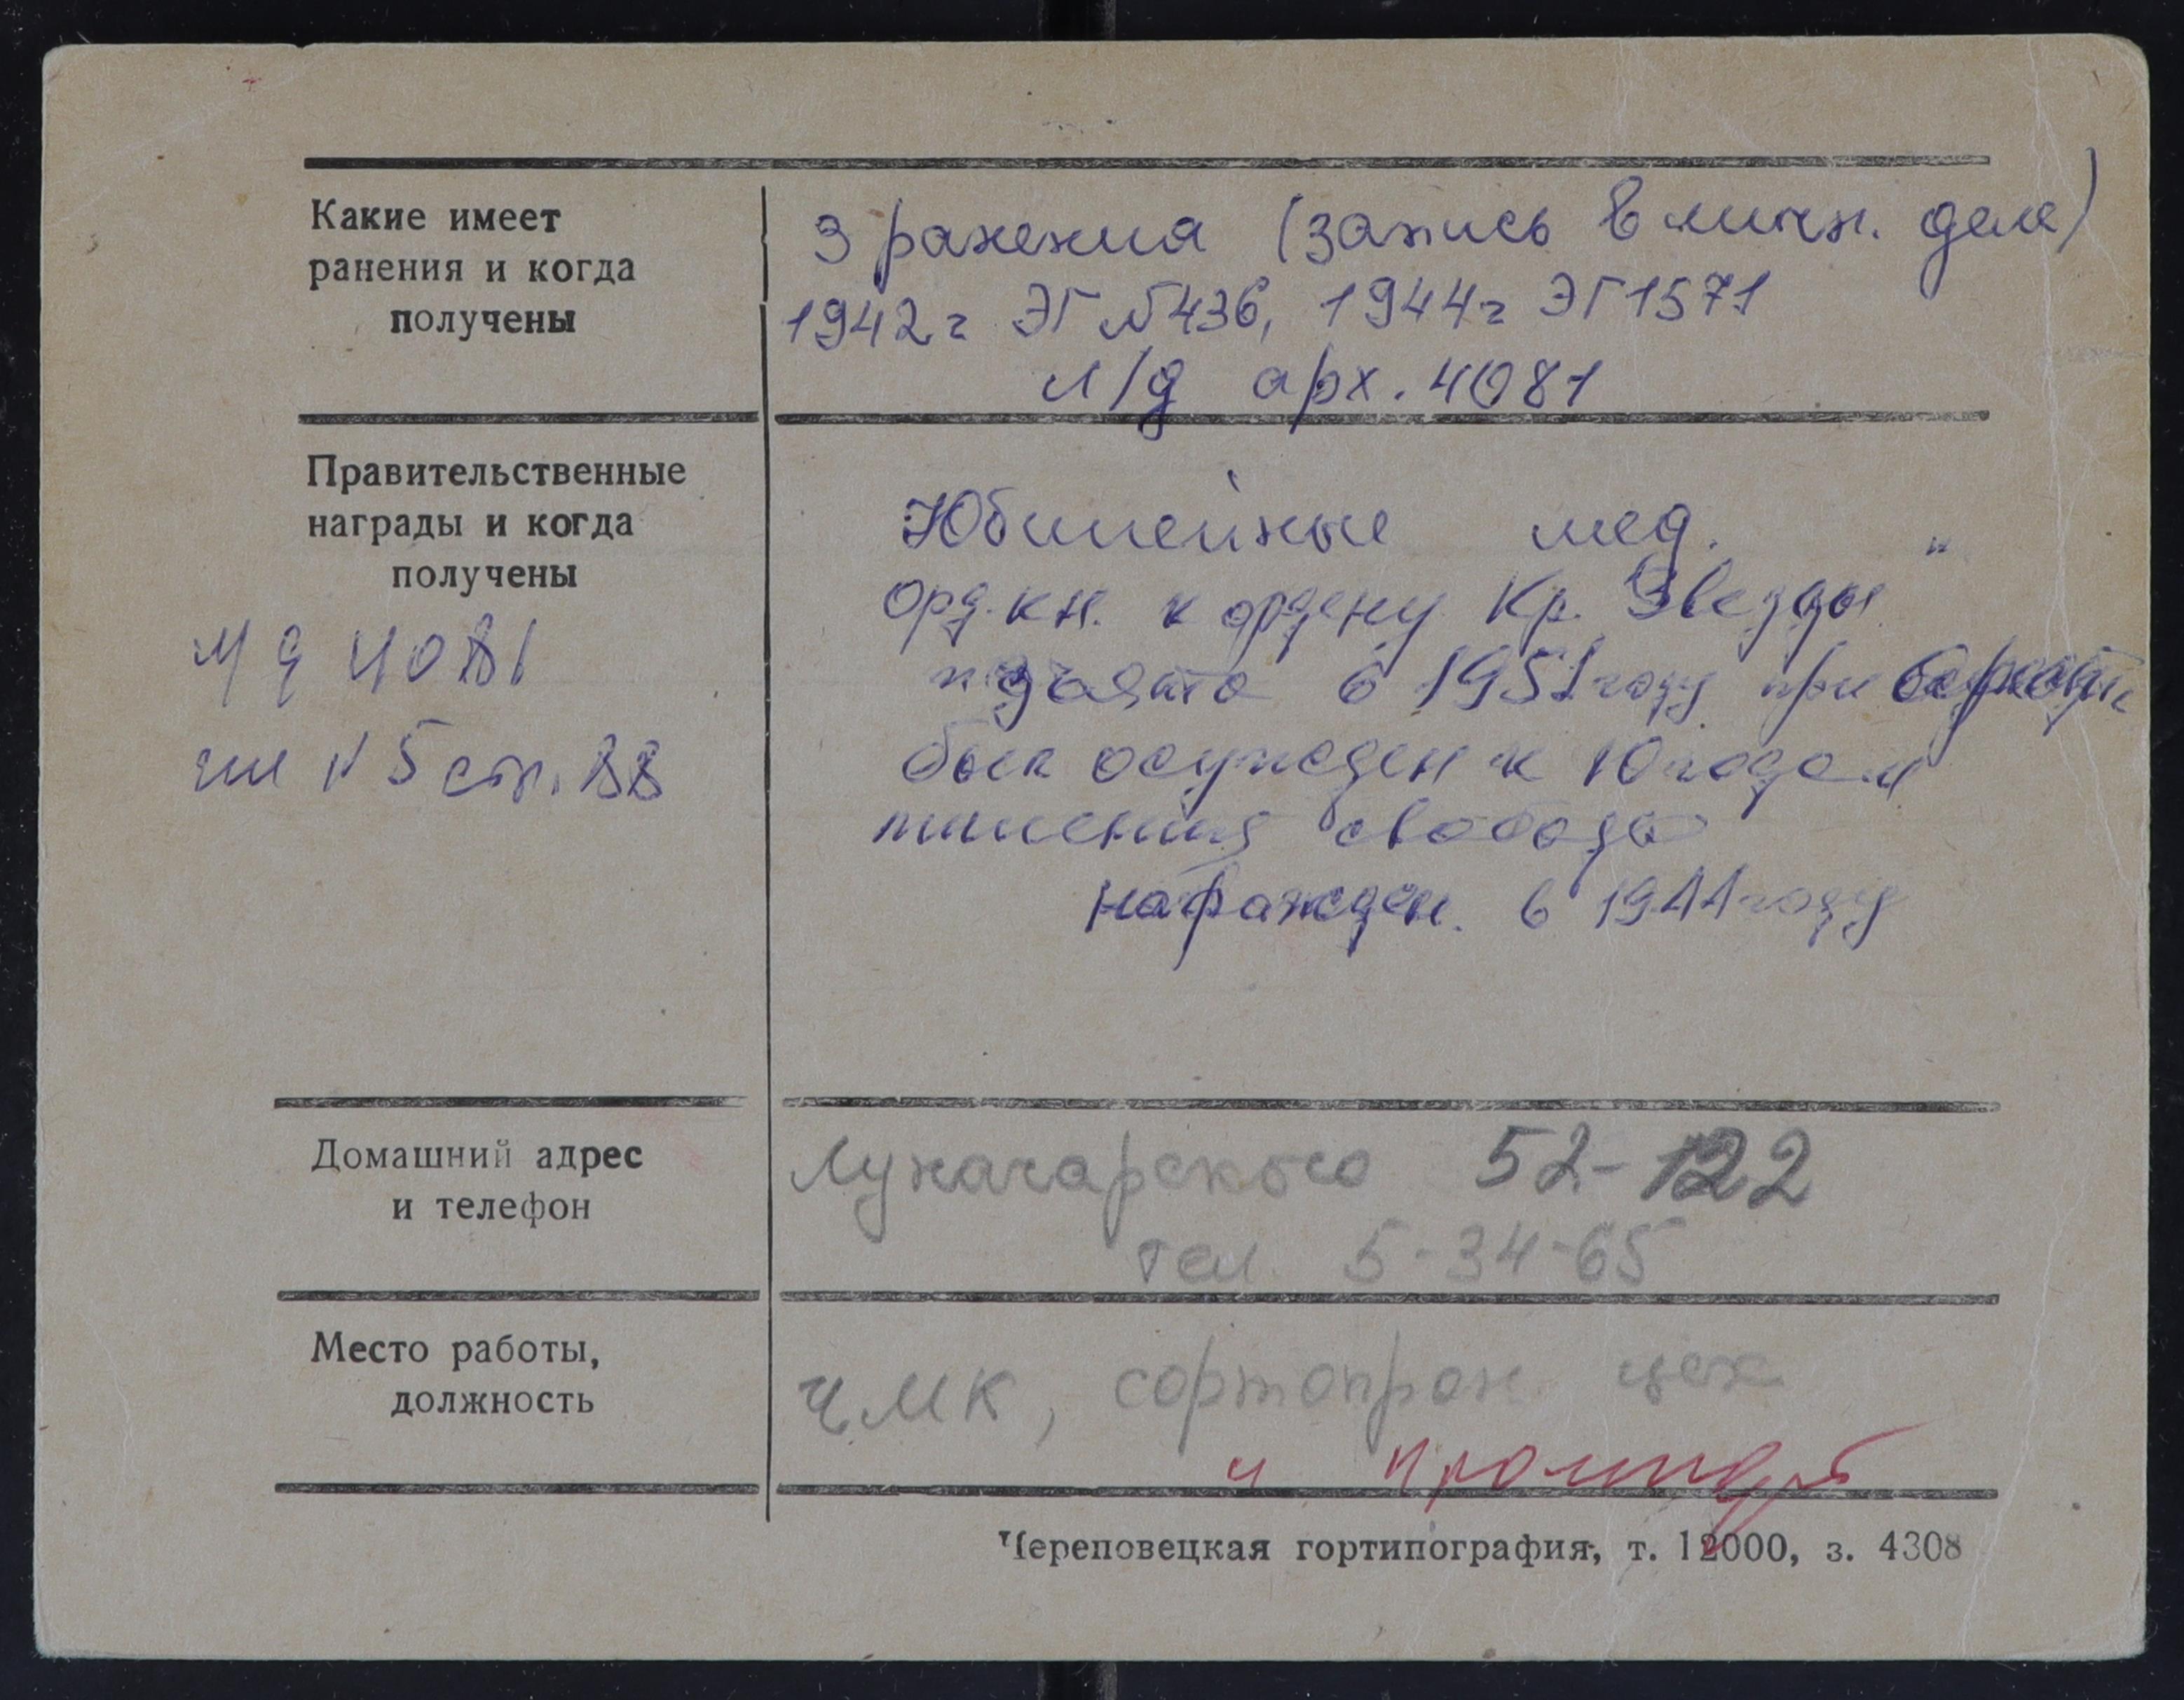 Какие имеет
ранения и когда
получены
3 ранения (запись в личн. деле)
1942г ЭГ №436, 1944г ЭГ1571
л/д арх. 4081
Правительственные
награды и когда
получены
4081
N 5 стр. 88
Юбилейные мед.
Орд. кн. к ордену Кр. Звезды"
в 1951 году при
был осужден к 10 годам
лишения свободы
награжден. в 1944 году
Домашний адрес
и телефон
Луначарского 52-122
тел. 5-34-65
Место работы,
должность
ЧМК, сортопрок. цех
Череповецкая гортипография, т. 12000, з. 4308